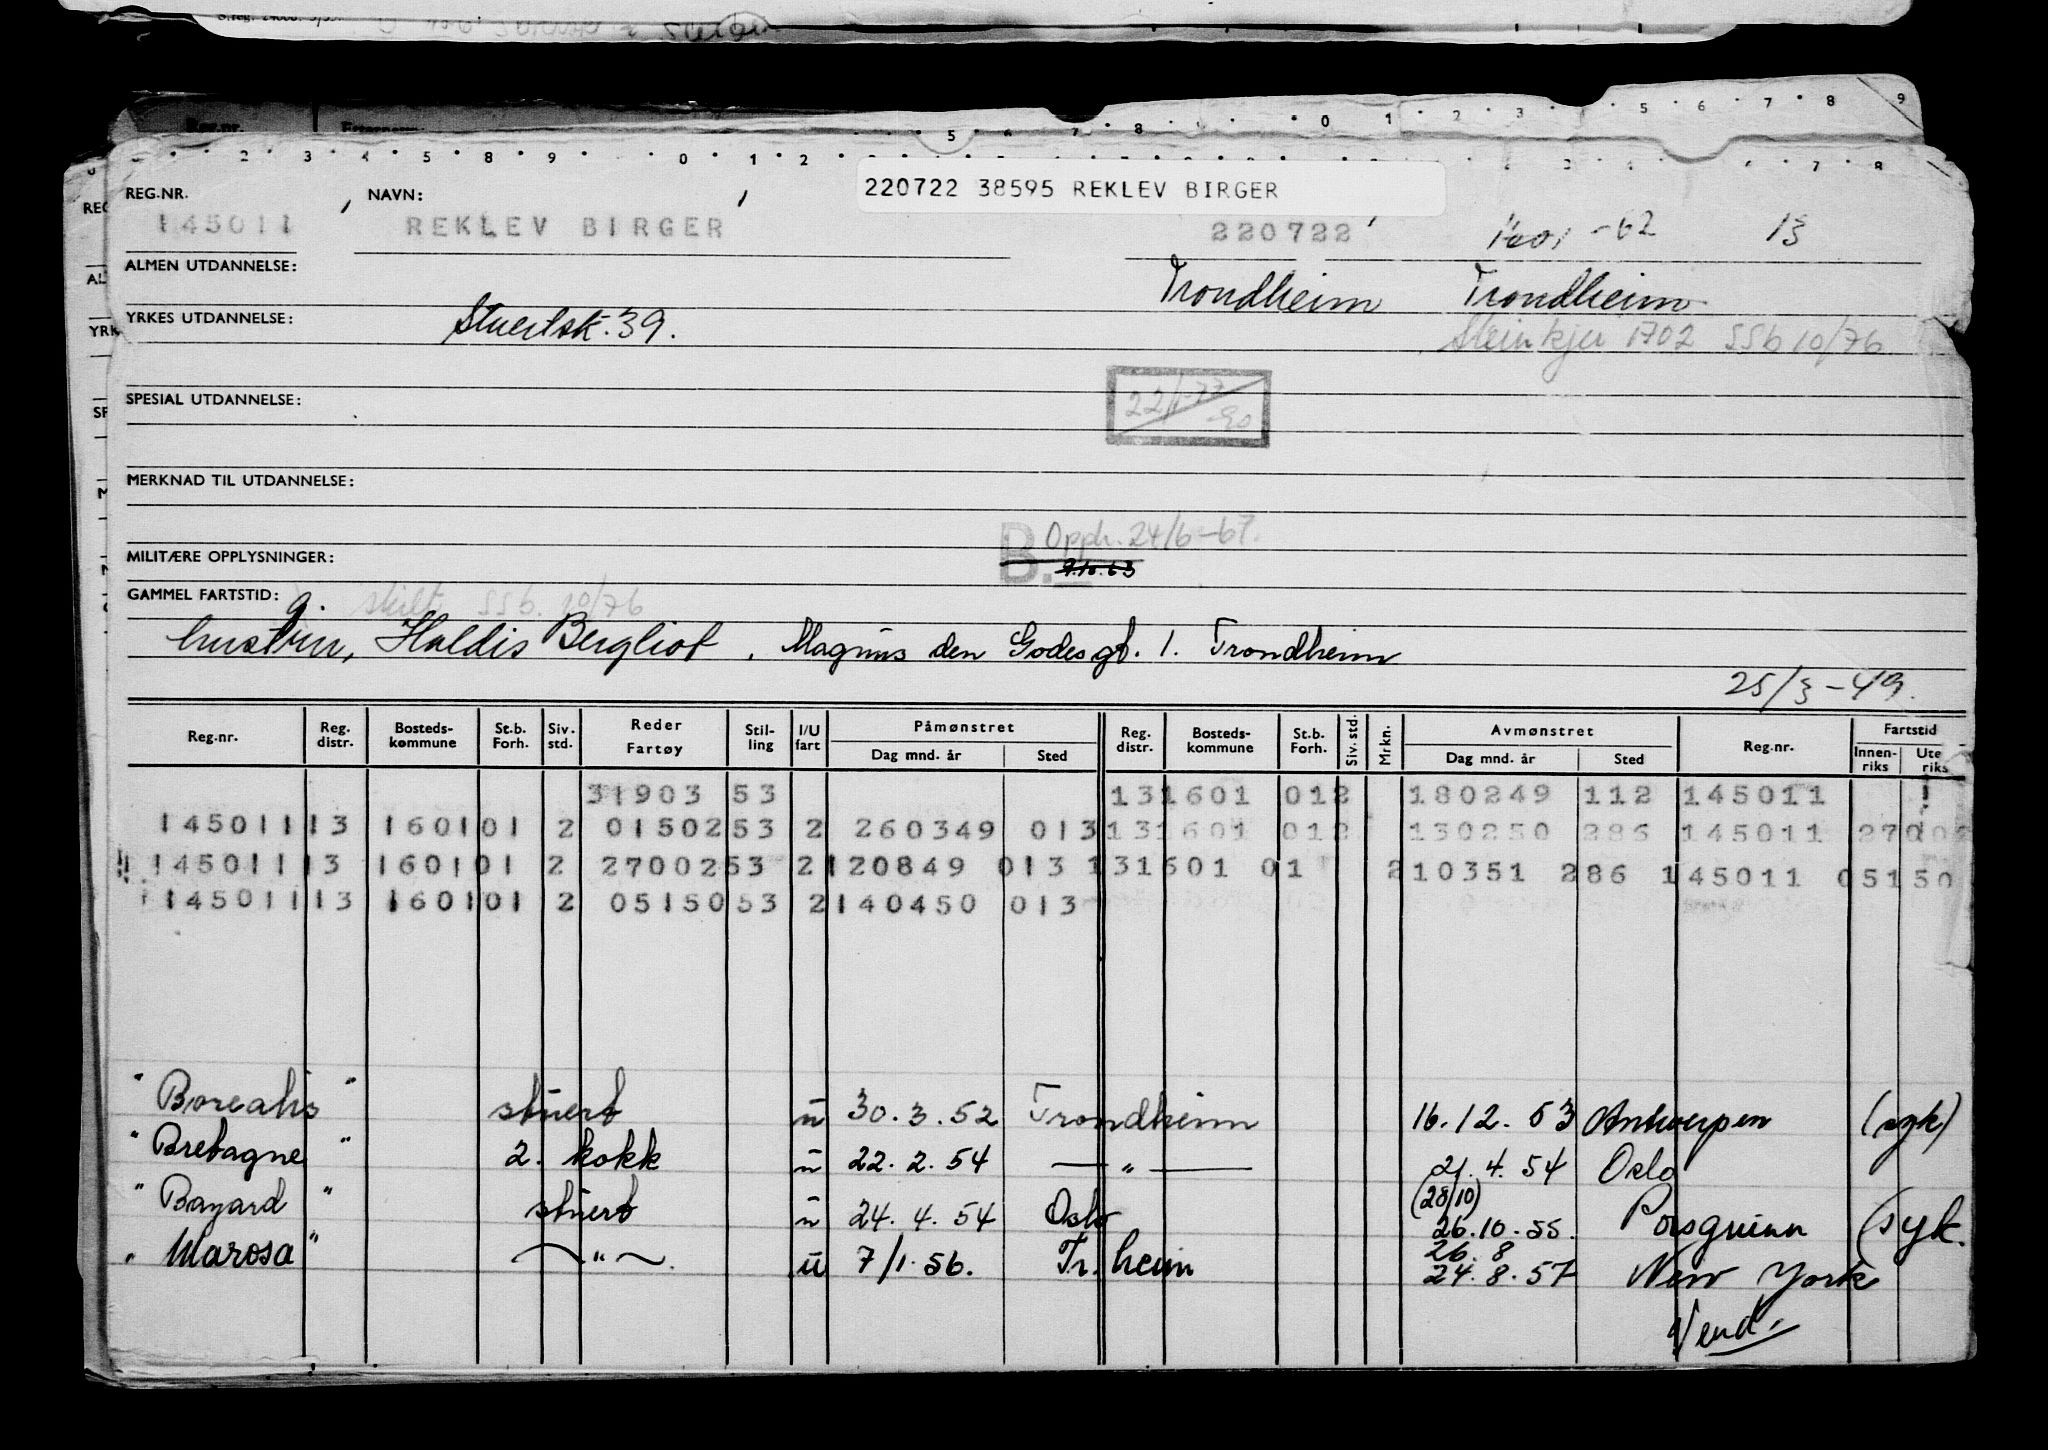 5 6 7 8 9 0 1 2 3 4 5 6 7 8 9
2 3 4 5 8 9 0 1 2
220722 38595 REKLEV BIRGER
REG.NR. NAVN:
145011 REKLEV BIRGER 220722 1601-62 13
ALMEN UTDANNELSE: Trondheim Trondheim
YRKES UTDANNELSE: Stuertsk. 39. Steinkjer 1702 SSb 10/76
SPESIAL UTDANNELSE: 22/1-77
MERKNAD TIL UTDANNELSE:
B. Opph. 24/6-67.
MILITÆRE OPPLYSNINGER: 9.10.63
GAMMEL FARTSTID: g. skilt SSb. 10/76
hustru, Haldis Bergliot, Magnus den Godesgt. 1. Trondheim
25/3-49.
Reg.nr. Reg. distr. Bosteds-kommune St.b. Forh. Siv. std. Reder Fartøy Stil-ling I/U fart Påmønstret Dag mnd. år Sted Reg. distr. Bosteds-kommune St.b. Forh. Siv. std. Mrkn. Avmønstret Dag mnd. år Sted Reg.nr. Fartstid Innen-riks Ute riks
31903 53 131601 012 180249 112 145011
145011 13 1601 01 2 01502 53 2 260349 013 131601 012 130250 286 145011 27002
145011 13 1601 01 2 27002 53 2 120849 013 131601 01 210351 286 145011 05150
145011 13 1601 01 2 05150 53 2 140450 013
"Borealis" stuert u 30.3.52 Trondheim 16.12.53 Antwerpen (syk)
"Bretagne" 2. kokk u 22.2.54 — " — 21.4.54 Oslo
"Bayard" stuert u 24.4.54 Oslo (28/10) 26.10.55. Porsgrunn (syk.
"Marosa" — " — u 7/1.56. Tr.heim 26.8 24.8.57 New York
Vend.